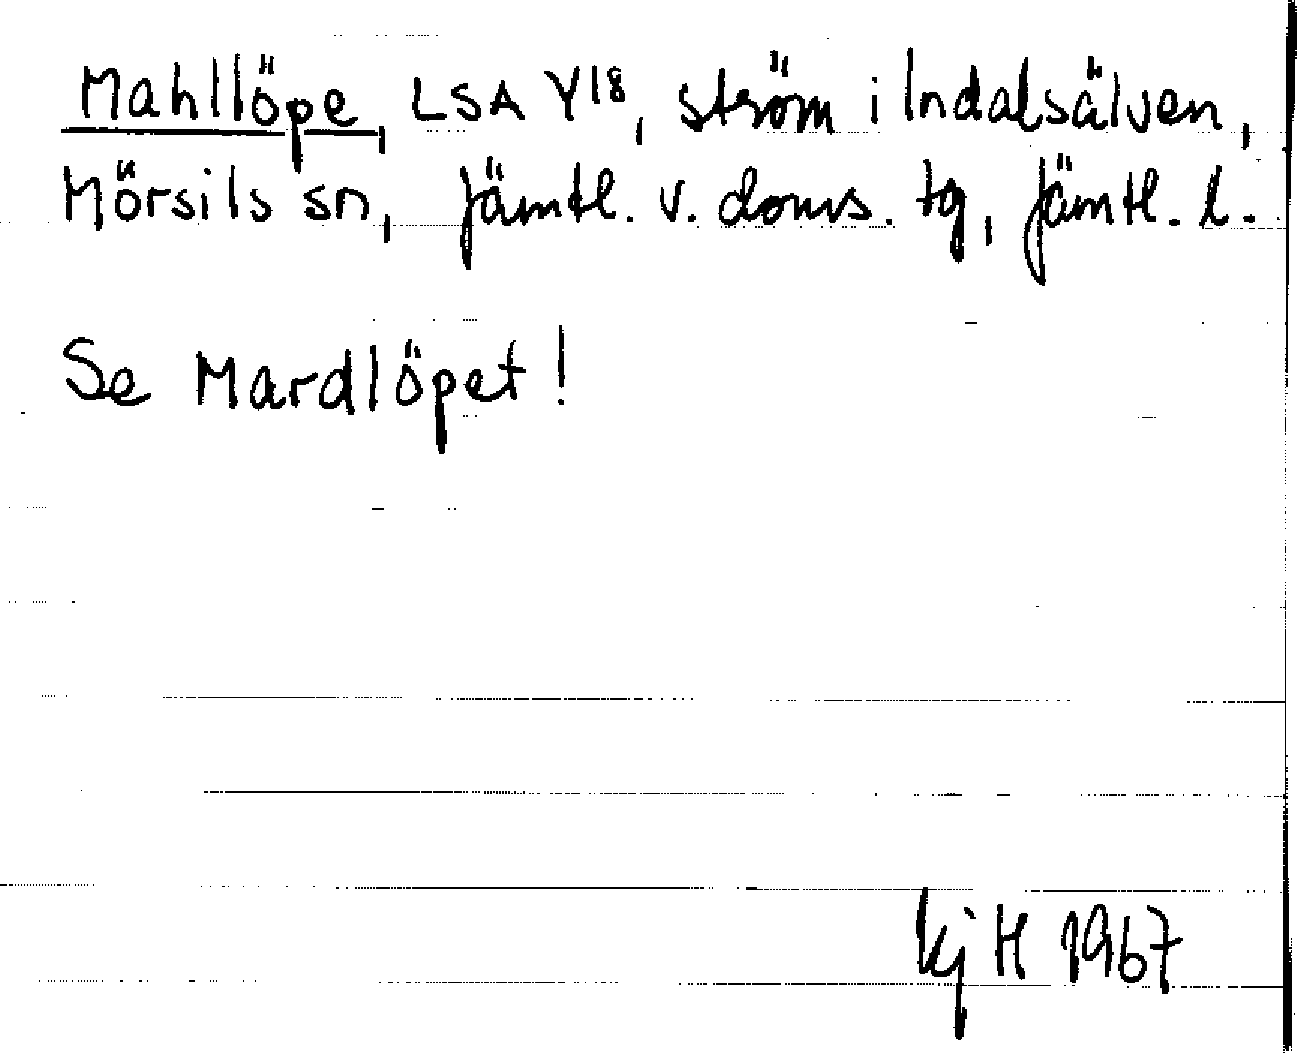 Mahllöpe, LSA Y18, ström i Indalsälven,
Mörsils sn, Jämtl. v. doms. tg, Jämtl. l.
Se Mardlöpet!
kj H 1967